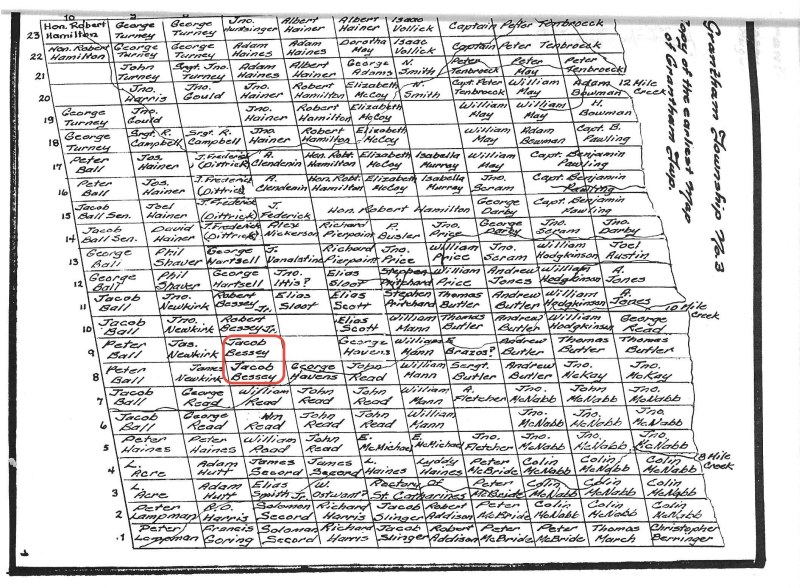 Grantham Township No. 3
Copy of the earliest map
of Grantham Twp.
10
23 Hon. Robert Hamilton George Turney George Turney Jno. Albert Hainer Albert Hainer Isaac Vollick Captain Peter Tenbroeck
22 Hon. Robert Hamilton George Turney George Turney Adam Hainer Adam Haines Dorotha May Isaac Vollick Captain Peter Tenbroeck
21 John Turney Srgt. Jno. Turney Adam Haines Albert Hainer George Adams N. Smith Peter Tenbroeck Peter May Peter Tenbroeck
20 Jno. Harris Jno. Gould Jno. Hainer Robert Hamilton Elizabeth McCoy N. Smith Capt. Peter Tenbroeck William May Adam Bowman 12 Mile Creek
19 George Turney Jno. Gould Jno. Hainer Robert Hamilton Elizabeth McCoy William May William May H. Bowman
18 George Turney Srgt. R. Campbell Srgt. R. Campbell Jno. Hainer Robert Hamilton Elizabeth McCoy William May Adam Bowman Capt. B. Pawling
17 Peter Ball Jos. Hainer J. Frederick (Dittrick) A. Clendenin Hon. Robt. Hamilton Elizabeth McCoy Isabella Murray William May Capt. Benjamin Pawling
16 Peter Ball Jos. Hainer J. Frederick (Dittrick) A. Clendenin Hon. Robt. Hamilton Elizabeth McCoy Isabella Murray Jno. Scram Capt. Benjamin Pawling
15 Jacob Ball Sen. Joel Hainer J. Frederick (Dittrick) J. Federick Hon. Robert Hamilton George Darby Capt. Benjamin Pawling
14 Jacob Ball Sen. David Hainer J. Frederick (Dittrick) Alex Nickerson Richard Pierpoint P. Butler Jno. Price George Darby Jno. Scram Jno. Darby
13 George Ball Phil Shaver George Hartsell J. Vanalstine Richard Pierpoint Jno. Price William Price Jno. Scram William Hodgkinson Joel Austin
12 George Ball Phil Shaver George Hartsell Jno. Ittis? Elias Sloot Stephen Pritchard William Price Andrew Jones William Hodgkinson A. Jones
11 Jacob Ball Jno. Newkirk Robert Bessey Jr. Elias Sloot Elias Scott Stephen Pritchard Thomas Butler Andrew Butler William Hodgkinson A. Jones 10 Mile Creek
10 Jacob Ball Jno. Newkirk Robert Bessey Jr. Elias Scott William Mann Thomas Butler Andrew Butler William Hodgkinson George Read
9 Peter Ball Jas. Newkirk Jacob Bessey George Havens William Mann E. Brazos? Andrew Butler Thomas Butler Thomas Butler
8 Peter Ball James Newkirk Jacob Bessey George Havens John Read William Mann Sergt. Butler Andrew Butler Jno. McKay Jno. McKay
7 Jacob Ball George Read William Read John Read John Read William Mann A. Fletcher Jno. McNabb John McNabb Jno. McNabb
6 Jacob Ball George Read Wm Read John Read John Read William Mann Jno. McNabb Jno. McNabb Jno. McNabb
5 Peter Haines Peter Haines William Read John Read E. McMichael E. McMichael Jno. Fletcher Jno. McNabb Jno. McNabb Jno. McNabb
4 L. Acre Adam Hutt James Secord James Secord Haines Lyddy Haines Peter McBride Colin McNabb Colin McNabb Colin McNabb 8 Mile Creek
3 L. Acre Adam Hutt Elias Smith Jr. W. Ostwant? Rectory of St. Catharines Peter McBride Colin McNabb Colin McNabb Colin McNabb
2 Peter Lampman B/O. Harris Solomon Secord Richard Harris Jacob Slinger Robert Addison Peter McBride Colin McNabb Colin McNabb Colin McNabb
1 Peter Lampman Francis Goring Solomon Secord Richard Harris Jacob Slinger Robert Addison Peter McBride Peter McBride Thomas March Christopher Berringer